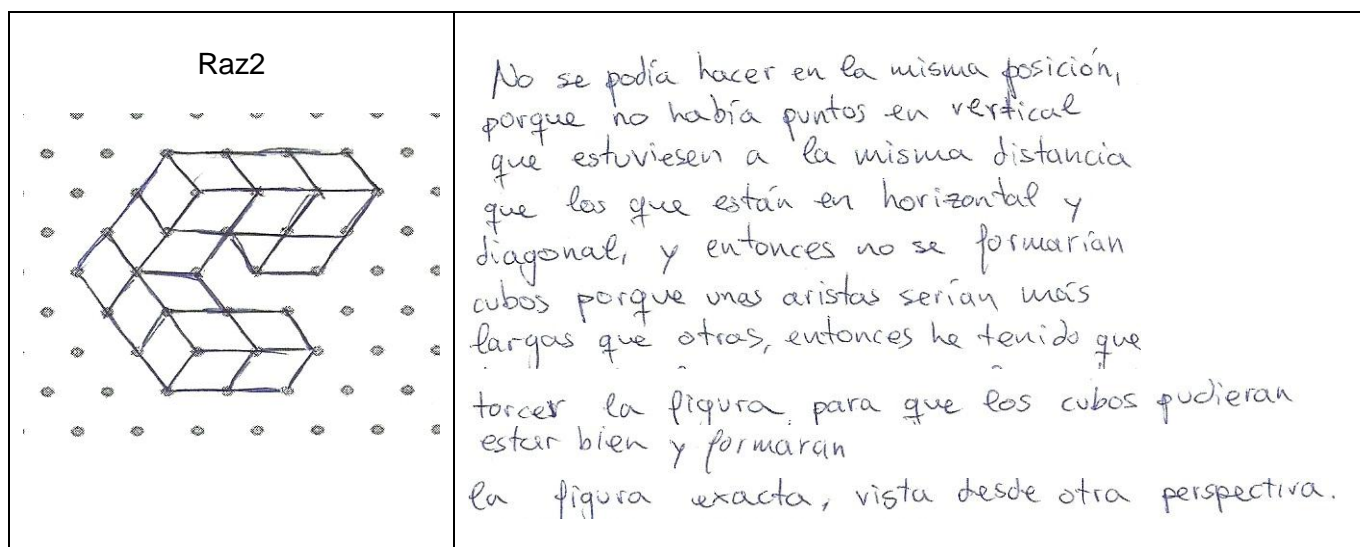 Raz2
No se podía hacer en la misma posición,
porque no había puntos en vertical
que estuviesen a la misma distancia
que los que están en horizontal y
diagonal, y entonces no se formarían
cubos porque unas aristas serían más
largas que otras, entonces he tenido que
torcer la figura para que los cubos pudieran
estar bien y formaran
la figura exacta, vista desde otra perspectiva.